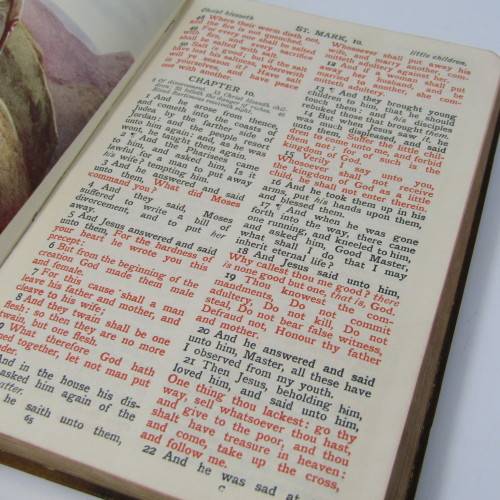 Christ blesseth
ST. MARK, 10.
little children.
48 Where their worm dieth not,
and the fire is not quenched.
49 For every one shall be salted
with fire, and every sacrifice
shall be salted with salt.
50 Salt is good: but if the salt
have lost his saltness, wherewith
will ye season it? Have salt in
yourselves, and have peace one
with another.
CHAPTER 10.
2 Of divorcement. 13 Christ blesseth chil-
dren.
1 And he arose from thence,
and cometh into the coasts of
Judæa by the farther side of
Jordan: and the people resort
unto him again; and, as he was
wont, he taught them again.
2 ¶ And the Pharisees came
to him, and asked him, Is it
lawful for a man to put away
his wife? tempting him.
3 And he answered and said
unto them, What did Moses
command you?
4 And they said, Moses
suffered to write a bill of
divorcement, and to put her
away.
5 And Jesus answered and said
unto them, For the hardness of
your heart he wrote you this
precept:
6 But from the beginning of the
creation God made them male
and female.
7 For this cause shall a man
leave his father and mother, and
cleave to his wife;
8 And they twain shall be one
flesh: so then they are no more
twain, but one flesh.
9 What therefore God hath
joined together, let not man put
asunder.
And in the house his dis-
asked him again of the
matter.
he saith unto them,
65
Whosoever shall put away his
wife, and marry another, com-
mitteth adultery against her.
12 And if a woman shall put
away her husband, and be
married to another, she com-
mitteth adultery.
13 ¶ And they brought young
children to him, that he should
touch them: and his disciples
rebuked those that brought them.
14 But when Jesus saw it, he
was much displeased, and said
unto them, Suffer the little chil-
dren to come unto me, and forbid
them not: for of such is the
kingdom of God.
15 Verily I say unto you,
Whosoever shall not receive
the kingdom of God as a little
child, he shall not enter therein.
16 And he took them up in his
arms, put his hands upon them,
and blessed them.
17 ¶ And when he was gone
forth into the way, there came
one running, and kneeled to him,
and asked him, Good Master,
what shall I do that I may
inherit eternal life?
18 And Jesus said unto him,
Why callest thou me good? there
is none good but one, that is, God.
19 Thou knowest the com-
mandments, Do not commit
adultery, Do not kill, Do not
steal, Do not bear false witness,
Defraud not, Honour thy father
and mother.
20 And he answered and said
unto him, Master, all these have
I observed from my youth.
21 Then Jesus, beholding him,
loved him, and said unto him,
One thing thou lackest: go thy
way, sell whatsoever thou hast,
and give to the poor, and thou
shalt have treasure in heaven:
and come, take up the cross,
and follow me.
22 And he was sad at
C